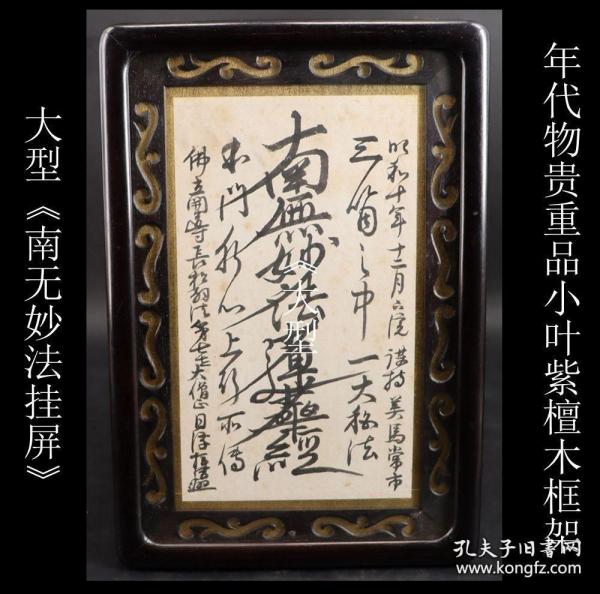 年代物贵重品小叶紫檀木框架
昭和十年十二月 美馬常市
三箇之中一大秘法
南無妙法蓮華經
《大型
本門肝心上行所傳
佛立開導 長松 大僧正日淳
大型《南无妙法挂屏》
孔夫子旧书网
www.kongfz.com